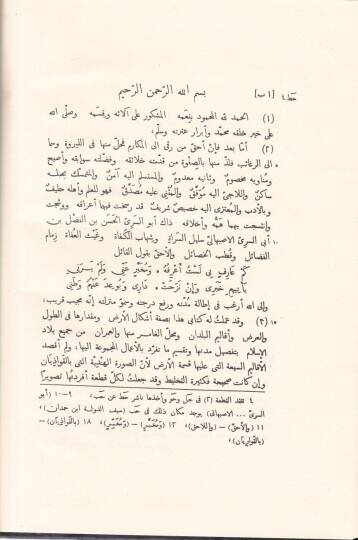 حط ٤ [١ ب] بسم الله الرّحمن الرّحيم
(١) الحمد لله المحمود بنعمه المشكور على آلائه وقسمه وصلّى الله
على خير خلقه محمّد وأبرار عترته وسلّم،
(٢) أمّا بعد فإنّ أحقّ من رقى الى المكارم فحلّ منها فى الذروة وسما
الى الرغائب من خلائقه وفضلته سوابقه وأصبح
ومناويه مخصوم وثانيه معدوم والمتوسّل اليه آمن والمتمسّك بحبله
ساكن واللاجئ اليه موفّق والمثنى عليه مصدّق فهو للعلم وأهله حليف
وبالأدب والمعتزى اليه خصيص شريف قد رسخت فيها أعراقه ووشّجت
وانتسجت بهما همّته وأخلاقه ذاك أبو السرىّ الحسن بن الفضل بن
١٠ أبى السرىّ الاصبهانىّ سليل السراة وشهاب الكفاة وغيث العفاة زمام
الفضائل وقطب الخصائل والأحقّ بقول القائل
كم عارف بى لست أعرفه ومخبّر عنّى ولم يرنى
يأتيهم خبرى وإن نزحت دارى وبوعد عنهم وطنى
والى الله أرغب فى إطالة مدّته ورفع درجته وسموّ منزلته إنّه مجيب قريب،
١٥ (٣) وقد عملت له كتابى هذا بصفة أشكال الأرض ومقدارها فى الطول
والعرض وأقاليم البلدان ومحلّ الغامر منها والعمران من جميع بلاد
الإسلام بتفصيل مدنها وتقسيم ما تفرّد بالأعمال المجموعة اليها، ولم أقصد
الأقاليم السبعة التى عليها قسمة الأرض لأنّ الصورة الهنديّة التى بالقواذيان
وإن كانت صحيحة فكثيرة التخليط وقد جعلت لكلّ قطعة أفردتها تصويرا
٤ تفقد القطعة (٢) فى حل وحو وأخذها ناشر حط عن حب، ٩-١٠ (أبو
السرىّ ... الاصبهانى) يوجد مكان ذلك فى حب (سيف الدولة ابن حمدان)،
١١ (والأحقّ) - (واللاحق)، ١٢ (ومخبّر) - (ومخبر)، ١٨ (بالقواذيان) -
(بالقواديان)،